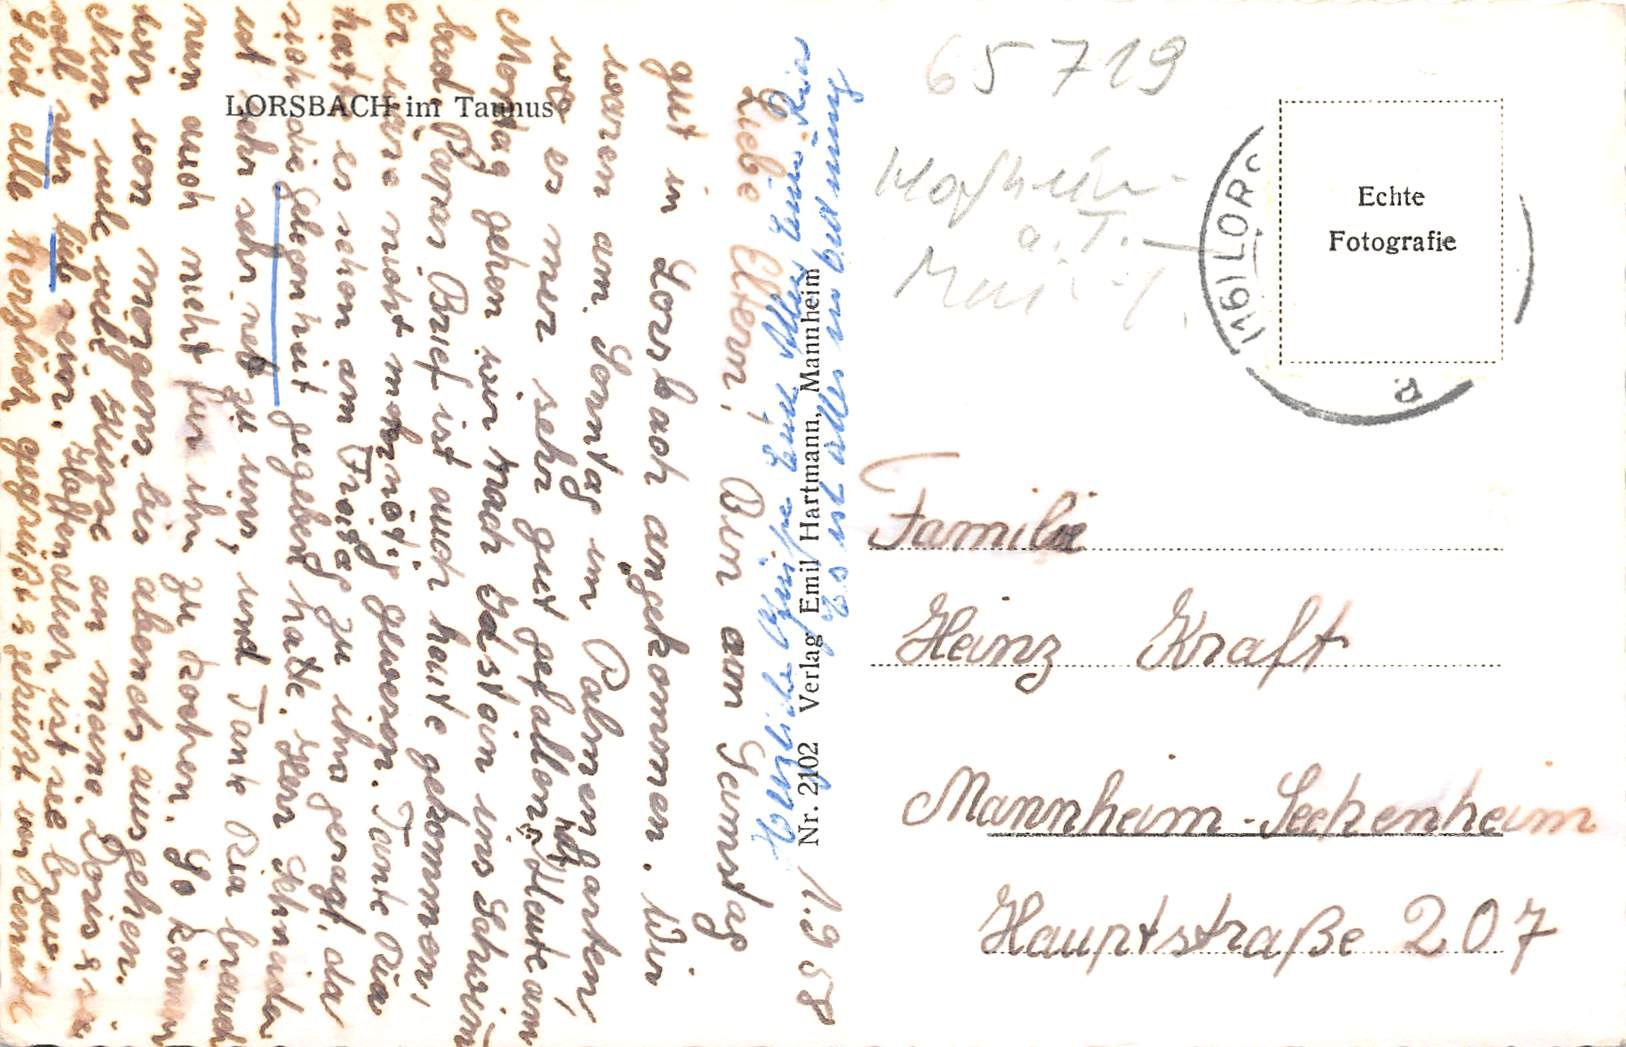 LORSBACH im Taunus
1.9.58
Liebe Eltern! Bin am Samstag
gut in Lorsbach angekommen. Wir
waren am Sonntag im Palmengarten,
wo es mir sehr gut gefallen hat. Heute am
Montag gehen wir nach
bad. Papas Brief ist auch heute gekommen,
Er wäre nicht mehr nötig gewesen. Tante Ria
hatte es schon am Freitag zu ihm gesagt, da
sich die Gelegenheit gegeben hatte. Herr
ist sehr sehr nett zu uns, und Tante Ria brauch
nun auch nicht für ihn zu kochen. So können
wir von morgens bis abends ausgehen.
Nun viele Grüße an
soll sehr lieb sein. Hoffentlich ist sie brav
Seid alle herzlich gegrüßt & geküsst von
Herzliche Grüße Euch allen Eure Ria
Es ist alles in Ordnung
Nr. 2102 Verlag Emil Hartmann, Mannheim
65719
Hofheim
a. T.
(16) LORS
d
Echte
Fotografie
Familie
Heinz Kraft
Mannheim-Seckenheim
Hauptstraße 207